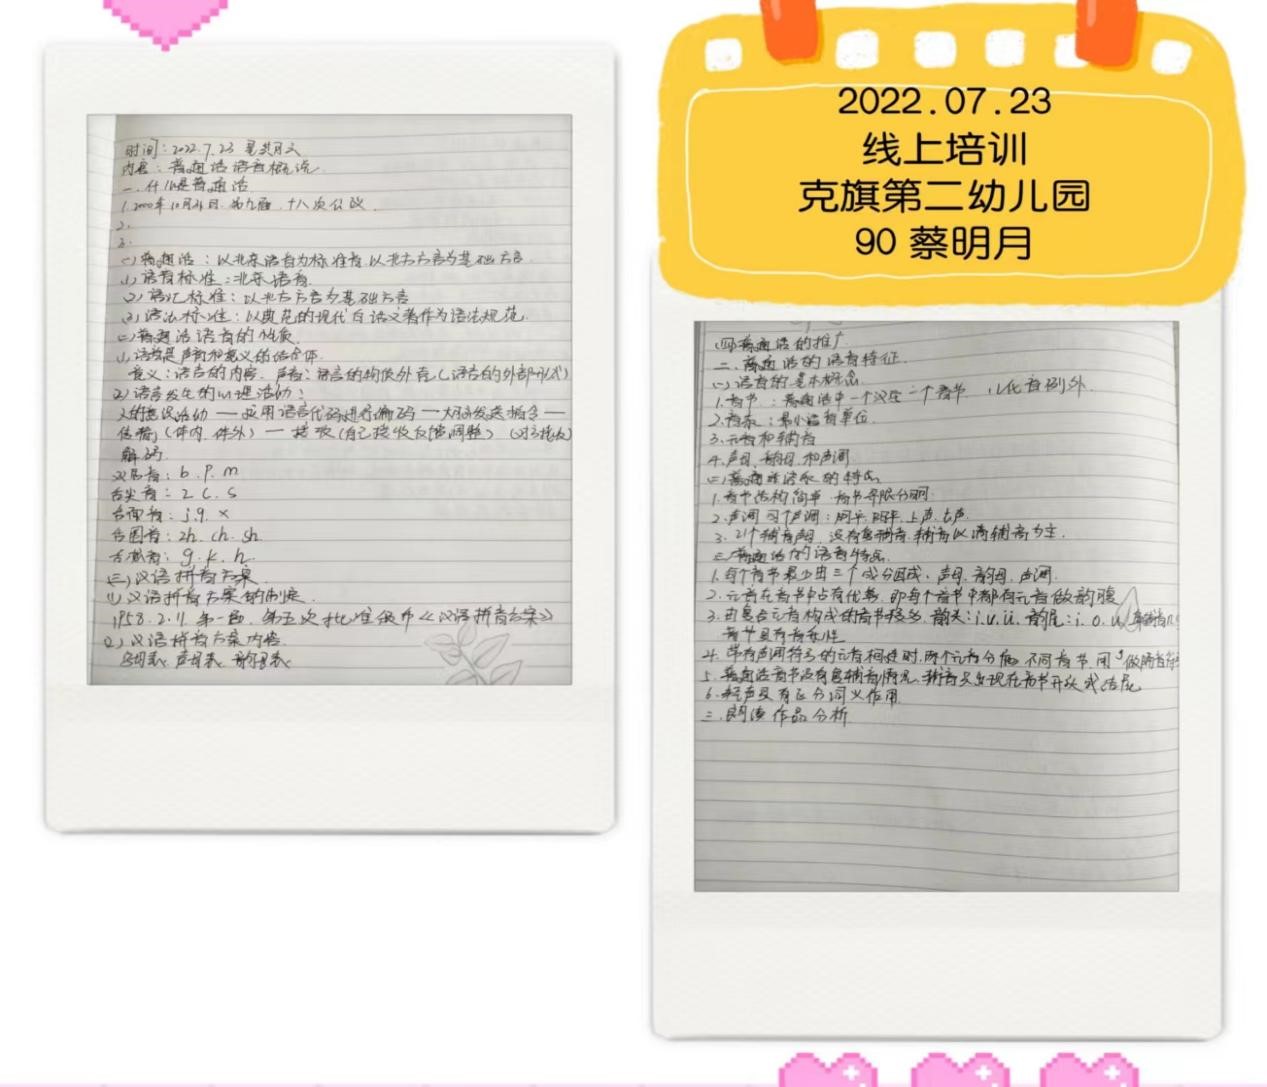 时间：2022.7.23 星期六
内容：普通话语音概说
一.什么是普通话
1.2000年10月31日.第九届.十八次会议.
2.
3.
(一)普通话：以北京语音为标准音.以北方方言为基础方言.
(1)语音标准：北京语音.
(2)语汇标准：以北方方言为基础方言
(3)语法标准：以典范的现代白话文著作为语法规范.
(二)普通话语音的性质.
(1)语音是声音和意义的结合体.
意义：语言的内容.声音：语言的物质外壳(语言的外部形式)
(2)语音发生的心理活动：
人的意识活动—应用语言代码进行编码—大脑发送指令—
传播(体内.体外)—接收(自己接收反馈调整)(对方接收)
解码.
双唇音：b.p.m
舌尖音：z c.s
舌面音：j.q.x
舌圆音：zh.ch.sh.
舌根音：g.k.h.
(三)汉语拼音方案.
(1)汉语拼音方案的制定.
1958.2.11.第一届.第五次批准颁布《汉语拼音方案》
(2)汉语拼音方案内容.
字母表.声母表.韵母表
2022.07.23
线上培训
克旗第二幼儿园
90 蔡明月
(四)普通话的推广.
二.普通话的语音特征.
(一)语音的基本概念
1.音节：普通话中一个汉字一个音节.儿化音例外.
2.音素：最小语音单位.
3.元音和辅音
4.声母.韵母.和声调
(二)普通话语音的特点
1.音节结构简单.音节界限分明.
2.声调四个声调：阴平.阳平.上声.去声.
3.21个辅音声母.没有复辅音.辅音以清辅音为主.
(三)普通话的语音特点.
1.每个音节最少由三个成分组成.声母.韵母.声调.
2.元音在音节中占有优势.即每个音节中都有元音做韵腹
3.由复合元音构成的音节较多.韵头：i.u.ü.韵尾：i.o.u
音节具有音乐性
4.带有声调符号的元音相连时.两个元音分属不同音节.用'做隔音
5.普通话音节没有复辅音情况.辅音只出现在音节开头或结尾
6.轻声具有区分词义作用.
三.朗读作品分析